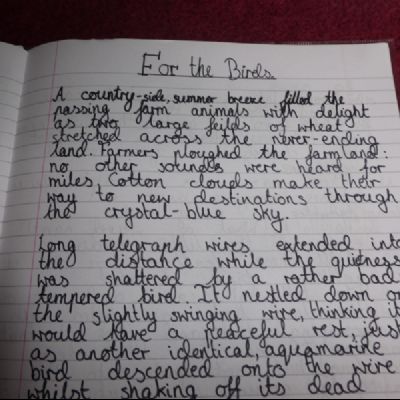 For the Birds.
A country-side, summer breeze filled the
passing farm animals with delight
as two large feilds of wheat
stretched across the never-ending
land. Farmers ploughed the farmland:
no other sounds were heard for
miles. Cotton clouds make their
way to new destinations through
the crystal-blue sky.
Long telegraph wires extended into
the distance while the quieness
was shattered by a rather bad
tempered bird. It nestled down on
the slightly swinging wire, thinking it
would have a peaceful rest, just
as another identical, aquamarine
bird descended onto the wire
whilst shaking off its dead